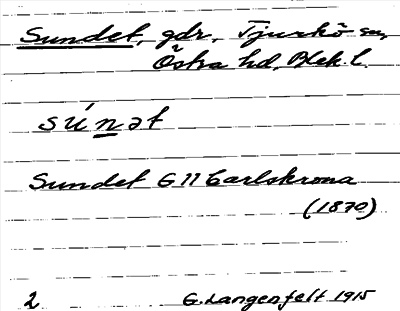 Sundet, gdr, Tjurkö sn,
Östra hd, Blek. l.
súnət
Sundet G 11 Carlskrona
(1870)
2 G. Langenfelt 1915